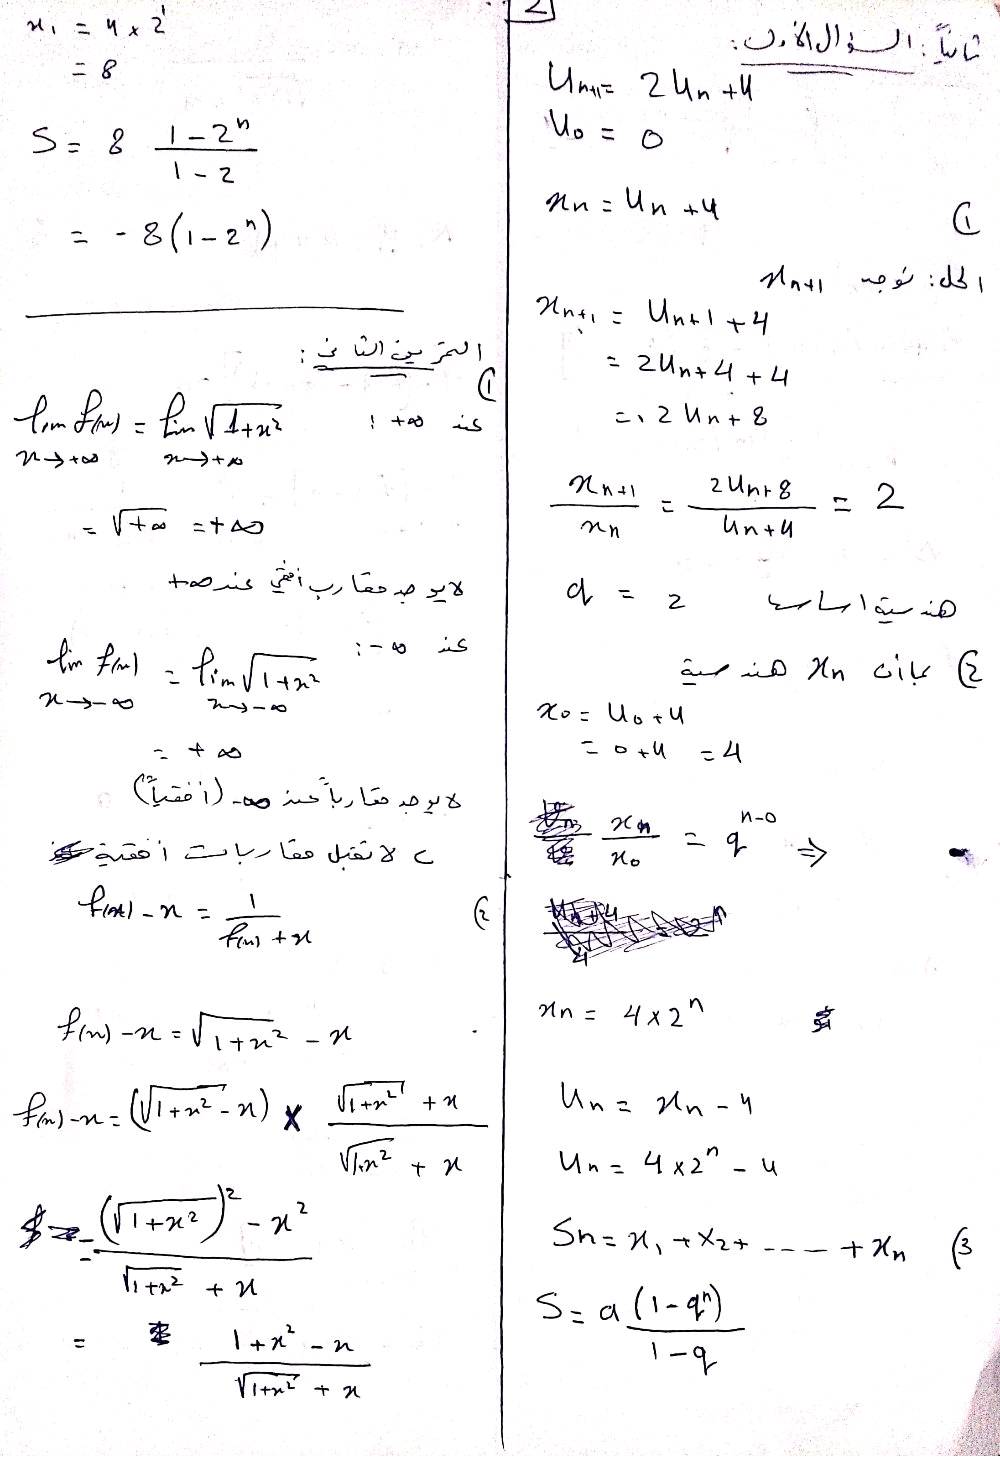 2
ثانياً: السؤال الأول:
Un+1 = 2Un + 4
U0 = 0
xn = Un + 4 (1
الحل: نوجد xn+1
xn+1 = Un+1 + 4
= 2Un + 4 + 4
= 2Un + 8
xn+1 / xn = (2Un + 8) / (Un + 4) = 2
هندسية اساسها q = 2
2) بما أن xn هندسية
x0 = U0 + 4
= 0 + 4 = 4
xn / x0 = q^(n-0) ⇒
xn = 4 × 2^n
Un = xn - 4
Un = 4 × 2^n - 4
Sn = x1 + x2 + ---- + xn (3
S = a (1 - q^n) / (1 - q)
x1 = 4 × 2^1
= 8
S = 8 (1 - 2^n) / (1 - 2)
= -8(1 - 2^n)
التمرين الثاني:
(1
عند +∞ : lim f(x) = lim √(1+x²)
x→+∞ x→+∞
= √+∞ = +∞
لا يوجد مقارب أفقي عند +∞
عند -∞ : lim f(x) = lim √(1+x²)
x→-∞ x→-∞
= +∞
لا يوجد مقارباً عند -∞ (أفقياً)
لا تقبل مقاربات أفقية
f(x) - x = 1 / (f(x) + x) (2
f(x) - x = √(1+x²) - x
f(x) - x = (√(1+x²) - x) × (√(1+x²) + x) / (√(1+x²) + x)
= ((√(1+x²))² - x²) / (√(1+x²) + x)
= (1 + x² - x) / (√(1+x²) + x)